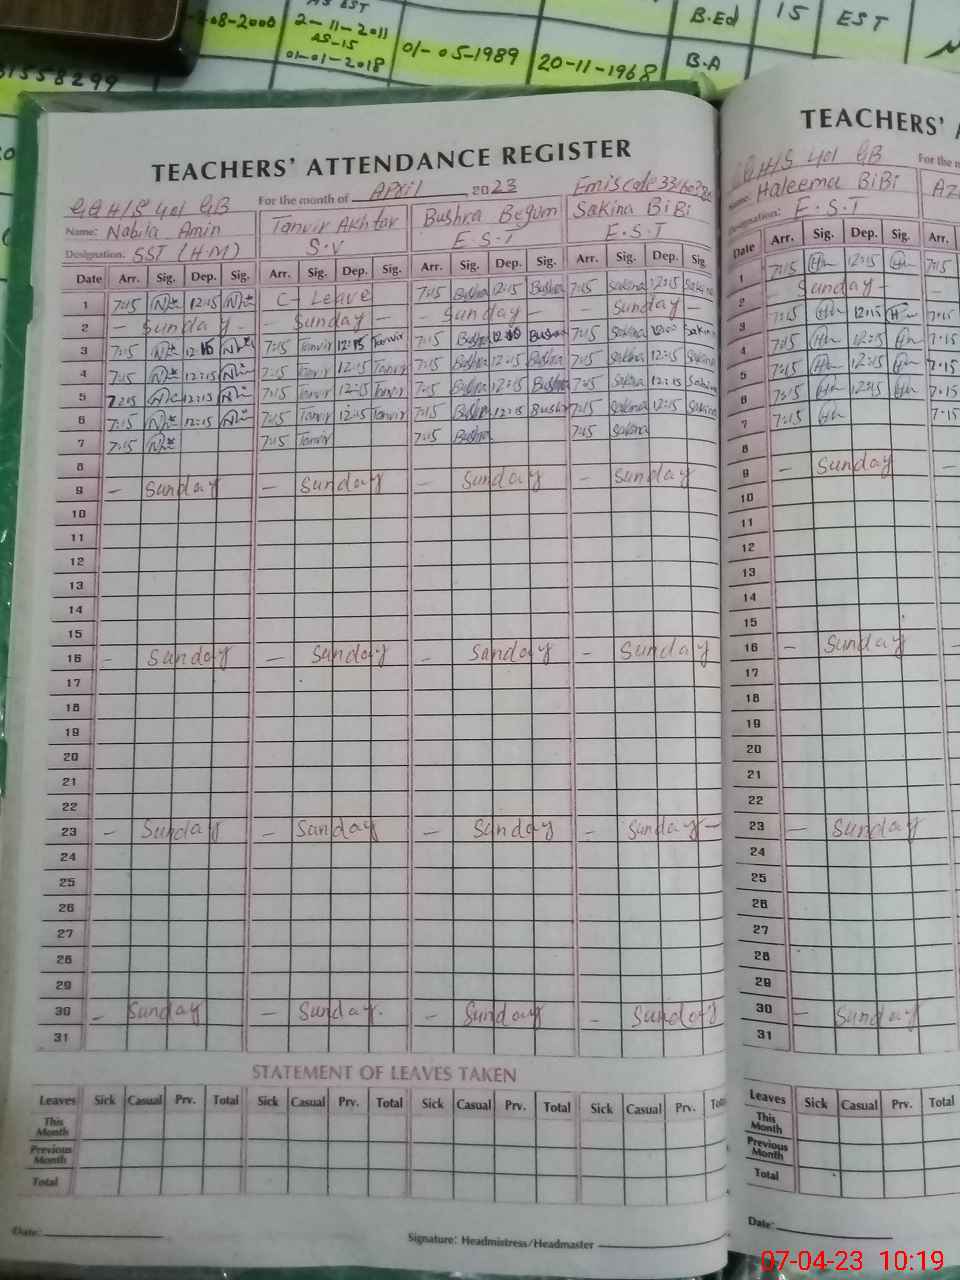 08-2000
2-11-2011
AS-15
01-01-2018
01-05-1989
20-11-1968
B.Ed
15
EST
B.A
1558299
TEACHERS' ATTENDANCE REGISTER
For the month of April, 2023
GGHS 401 GB
Name: Nabila Amin Tanvir Akhtar Bushra Begum Sakina BiBi
Designation: SST (H.M) S.V E.S.T E.S.T
Date Arr. Sig. Dep. Sig. Arr. Sig. Dep. Sig. Arr. Sig. Dep. Sig. Arr. Sig. Dep. Sig
1 7:15 12:15 C- Leave 7:15 Bushra 12:15 Bushra 7:15 Sakina 12:15 Sakina
2 - Sunday - - Sunday - - Sunday - - Sunday -
3 7:15 12:15 7:15 Tanvir 12:15 Tanvir 7:15 Bushra Bushra 7:15 Sakina Sakina
4 7:15 12:15 7:15 Tanvir 12:15 Tanvir 7:15 Bushra 12:15 Bushra 7:15 Sakina 12:15 Sakina
5 7:15 12:15 7:15 Tanvir 12:15 Tanvir 7:15 Bushra 12:15 Bushra 7:15 Sakina 12:15 Sakina
6 7:15 12:15 7:15 Tanvir 12:15 Tanvir 7:15 Bushra 12:15 Bushra 7:15 Sakina 12:15 Sakina
7 7:15 7:15 Tanvir 7:15 Bushra 7:15 Sakina
8
9 - Sunday - Sunday - Sunday - Sunday
10
11
12
13
14
15
16 - Sunday - Sunday - Sunday - Sunday
17
18
19
20
21
22
23 - Sunday - Sunday - Sunday - Sunday -
24
25
26
27
28
29
30 - Sunday - Sunday. - Sunday - Sunday
31
STATEMENT OF LEAVES TAKEN
Leaves Sick Casual Prv. Total Sick Casual Prv. Total Sick Casual Prv. Total Sick Casual Prv.
This Month
Previous Month
Total
Date:
Signature: Headmistress/Headmaster
TEACHERS'
GGHS 401 GB For the
Name: Haleema BiBi
Designation: E.S.T
Date Arr. Sig. Dep. Sig. Arr.
1 7:15 12:15 7:15
2 - Sunday -
3 7:15 12:15 7:15
4 7:15 12:15 7:15
5 7:15 12:15 7:15
6 7:15 12:15 7:15
7 7:15 7:15
8
9 - Sunday -
10
11
12
13
14
15
16 - Sunday -
17
18
19
20
21
22
23 - Sunday
24
25
26
27
28
29
30 - Sunday
31
Leaves Sick Casual Prv. Total
This Month
Previous Month
Total
Date:
07-04-23 10:19